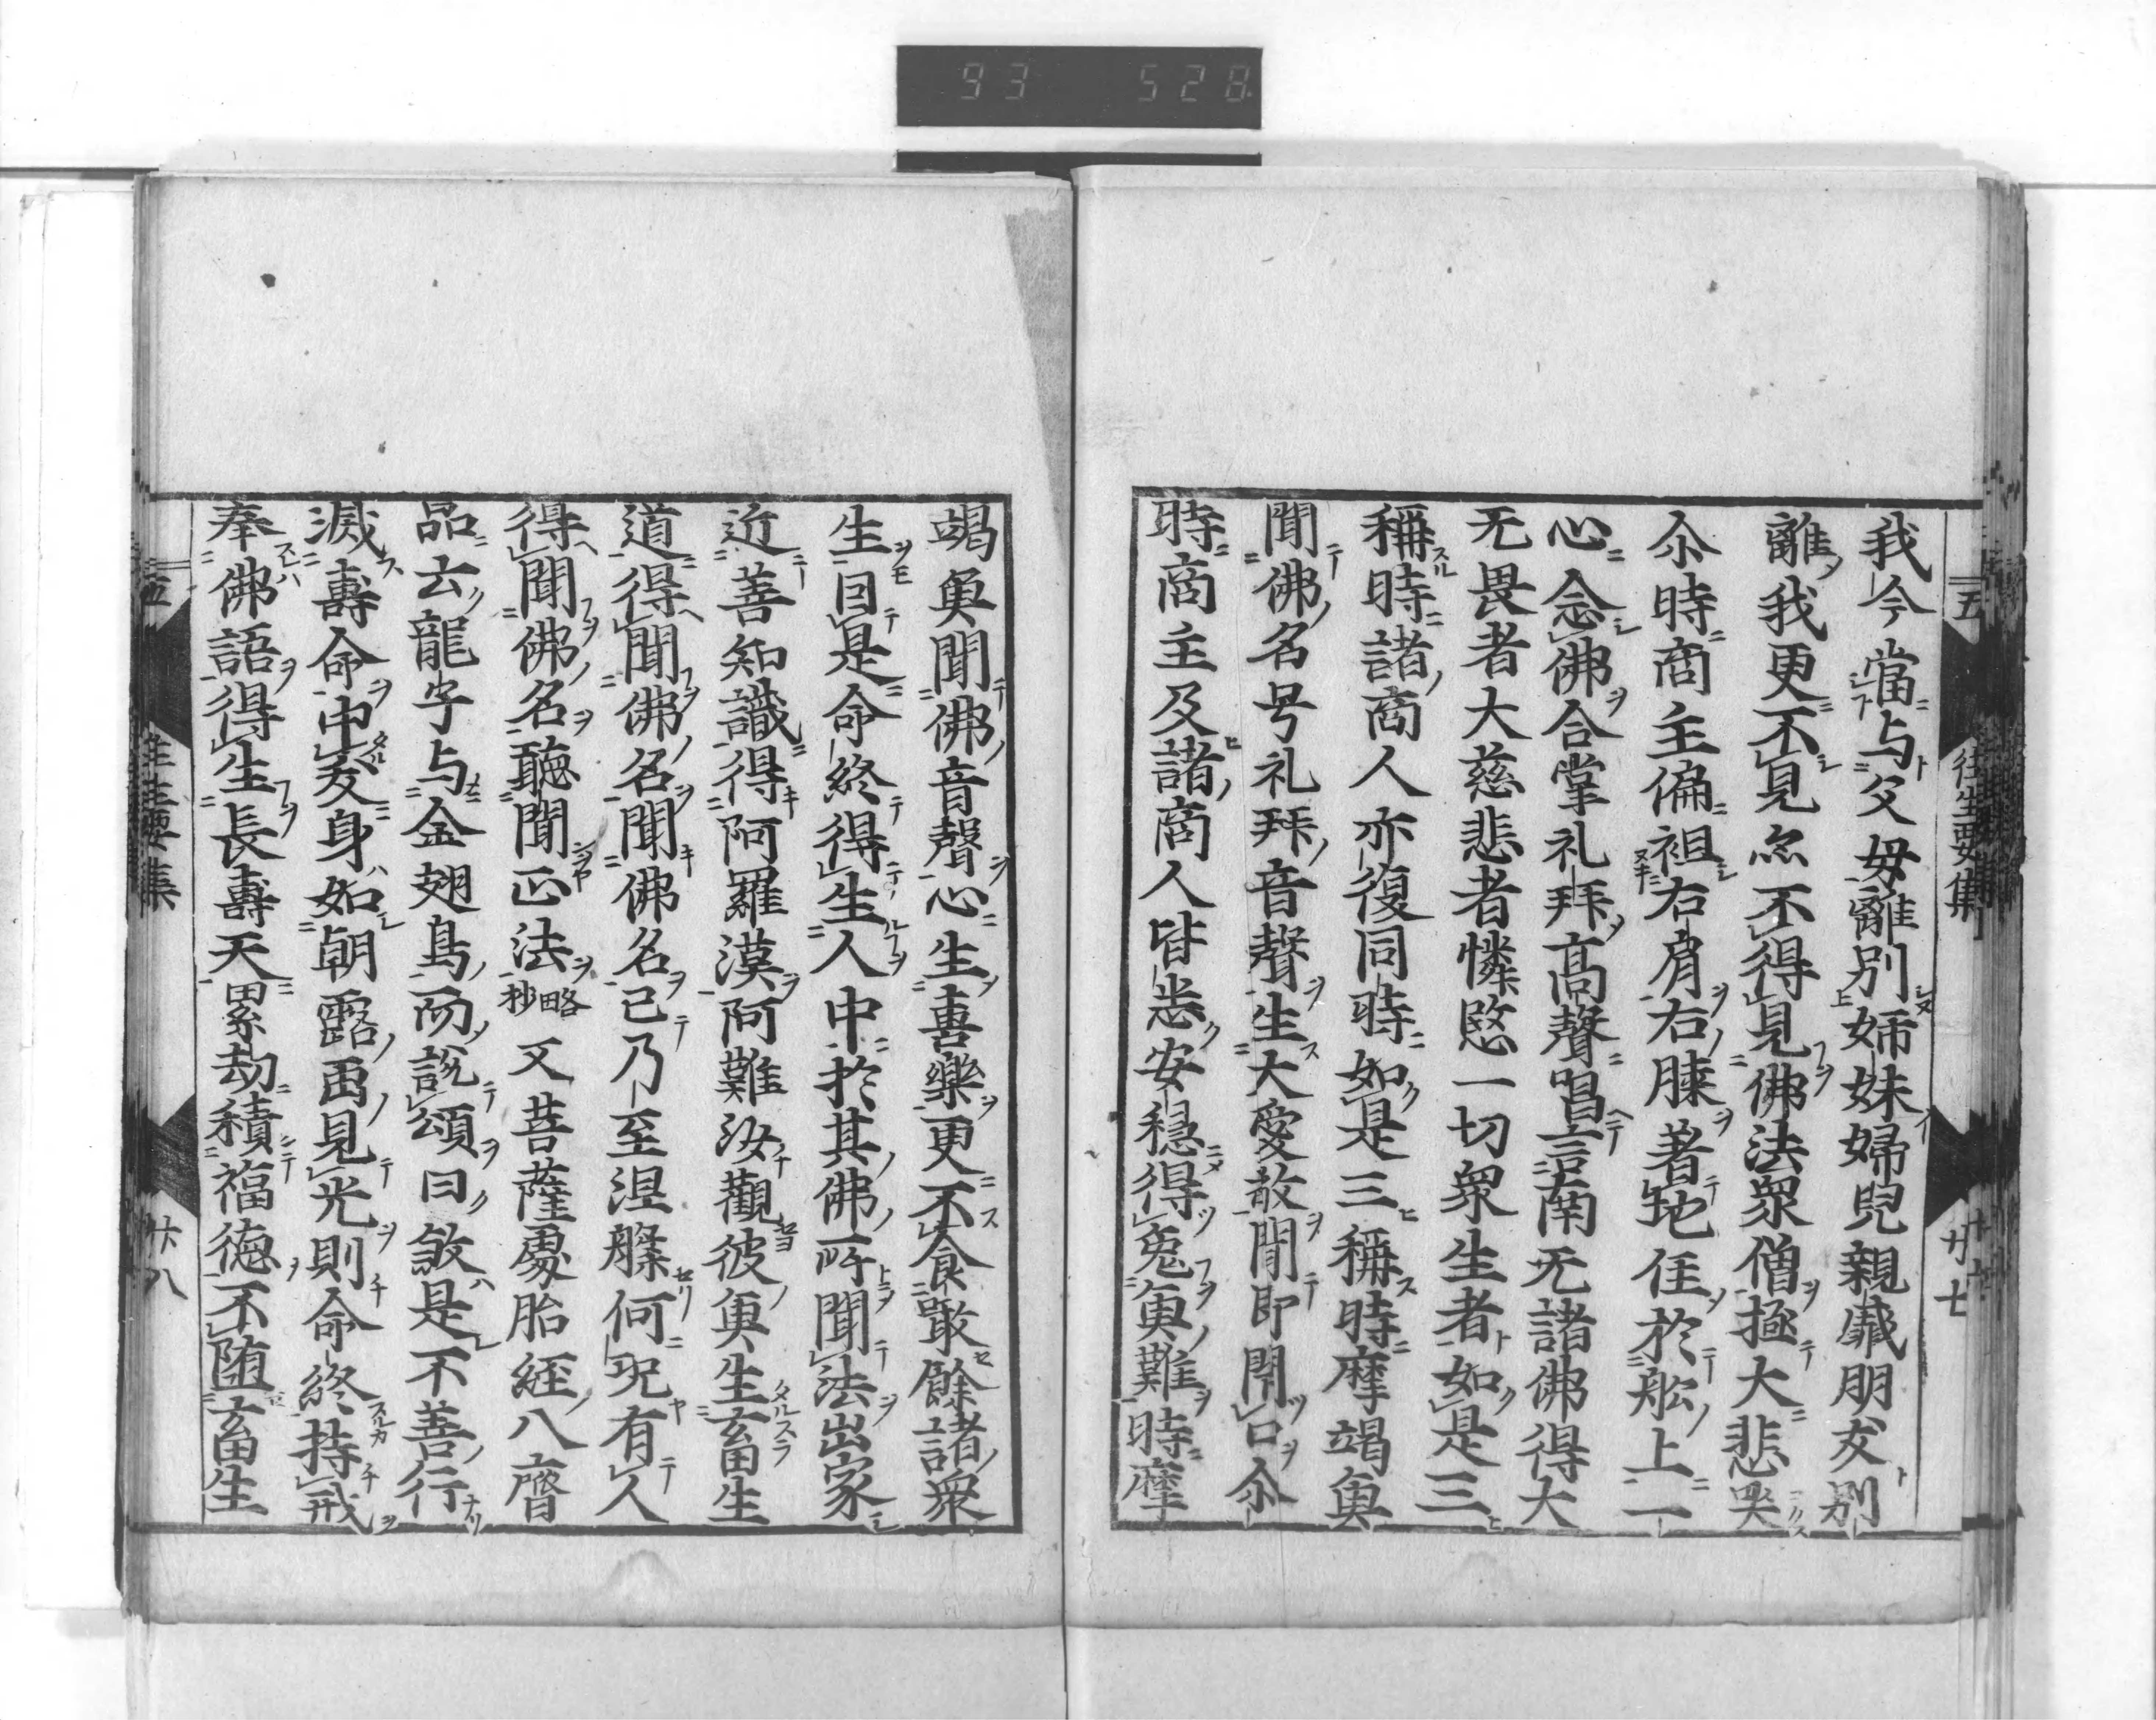 93 528
五 往生要集 廿七
我今當与父母離別姉妹婦兒親戚朋友別
離我更不見亦不得見佛法衆僧極大悲哭
尒時商主偏袒右肩右膝著地住於舩上一
心念佛合掌礼拜高聲唱言南无諸佛得大
无畏者大慈悲者憐愍一切衆生者如是三
稱時諸商人亦復同時如是三稱時摩竭奠
聞佛名号礼拜音聲生大愛敬聞即閇口尒
時商主及諸商人皆悉安穏得兔奠難時摩
竭奠聞佛音聲心生喜樂更不食噉餘諸衆
生因是命終得生人中於其佛所聞法出家
近善知識得阿羅漢阿難汝觀彼奠生畜生
道得聞佛名聞佛名已乃至涅槃何况有人
得聞佛名聽聞正法略抄又菩薩處胎經八齋
品云龍字与金翅鳥而說頌曰煞是不善行
滅壽命中夭身如朝露虫見光則命終持戒
奉佛語得生長壽天累劫積福徳不堕畜生
五 往生要集 廿八